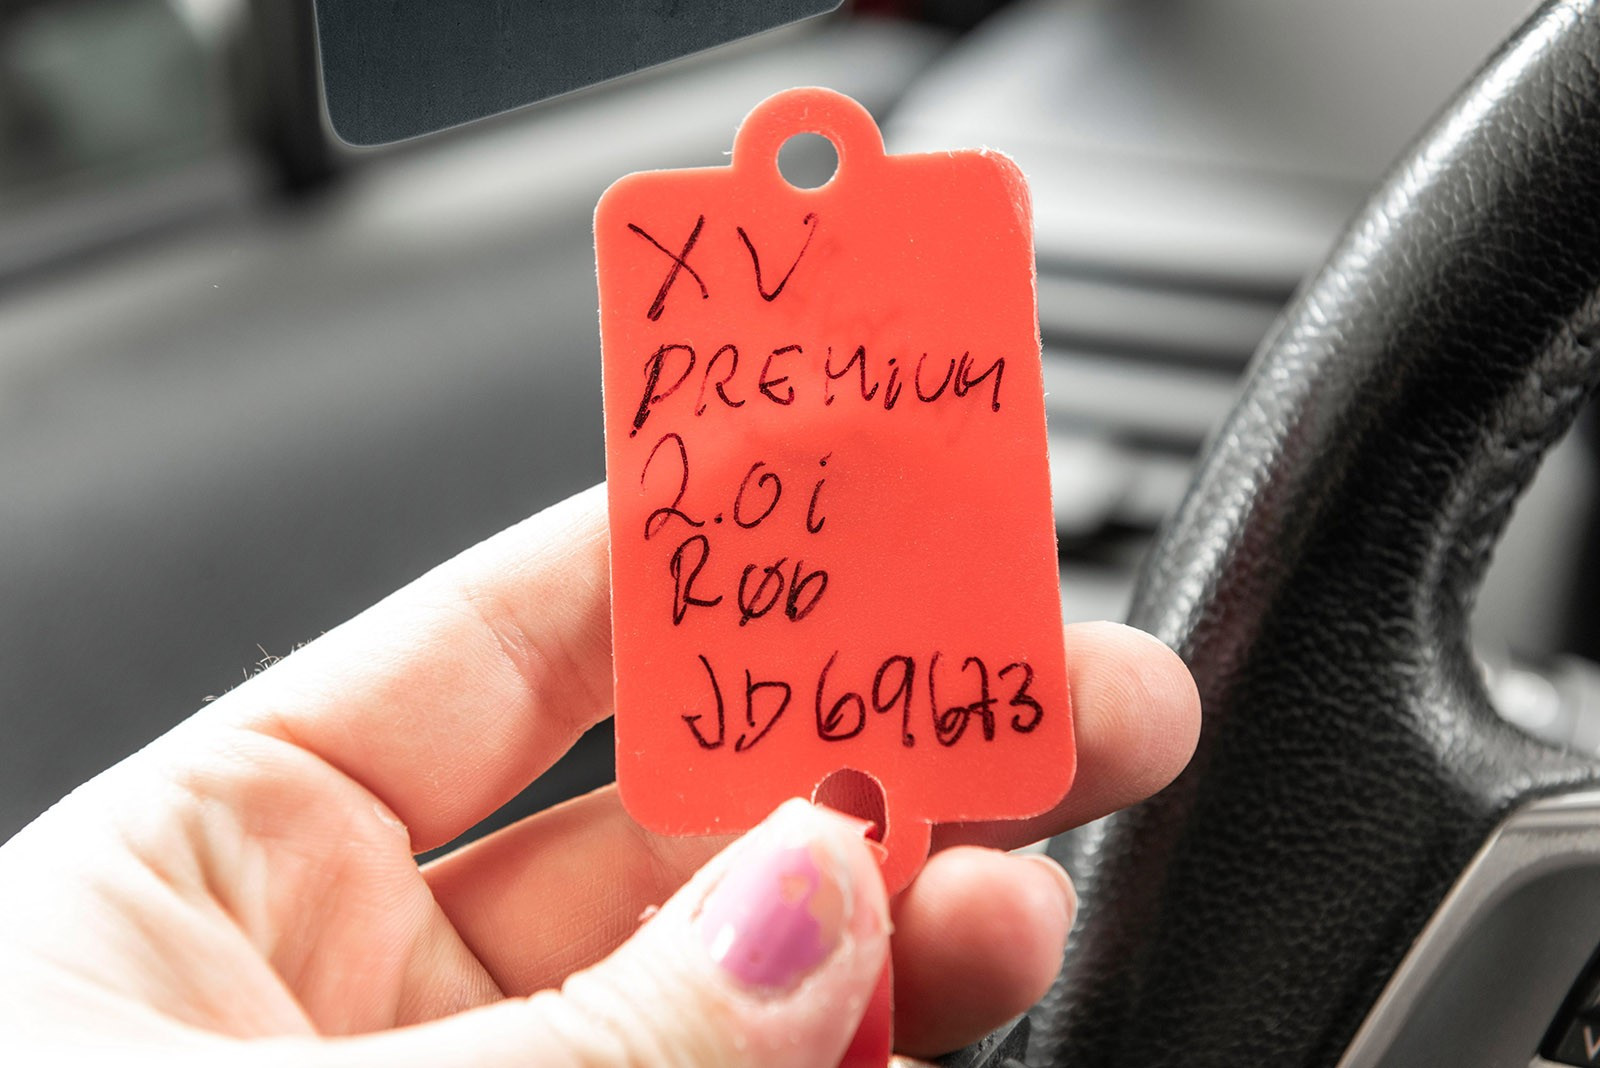 XV
PREMiUM
2.0i
RØD
JD69673